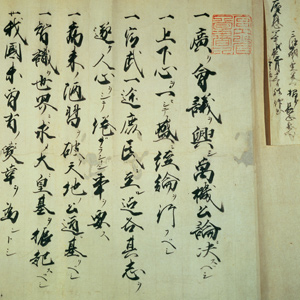 一廣ク會議ヲ興シ萬機公論ニ決スヘシ
一上下心ヲ一ニシテ盛ニ經綸ヲ行フヘシ
一官武一途庶民ニ至ル迄各其志ヲ
遂ケ人心ヲシテ倦マサラシメン事ヲ要ス
一舊來ノ陋習ヲ破リ天地ノ公道ニ基クヘシ
一智識ヲ世界ニ求メ大ニ皇基ヲ振起スヘシ
一我國未曾有ノ變革ヲ為ントシ